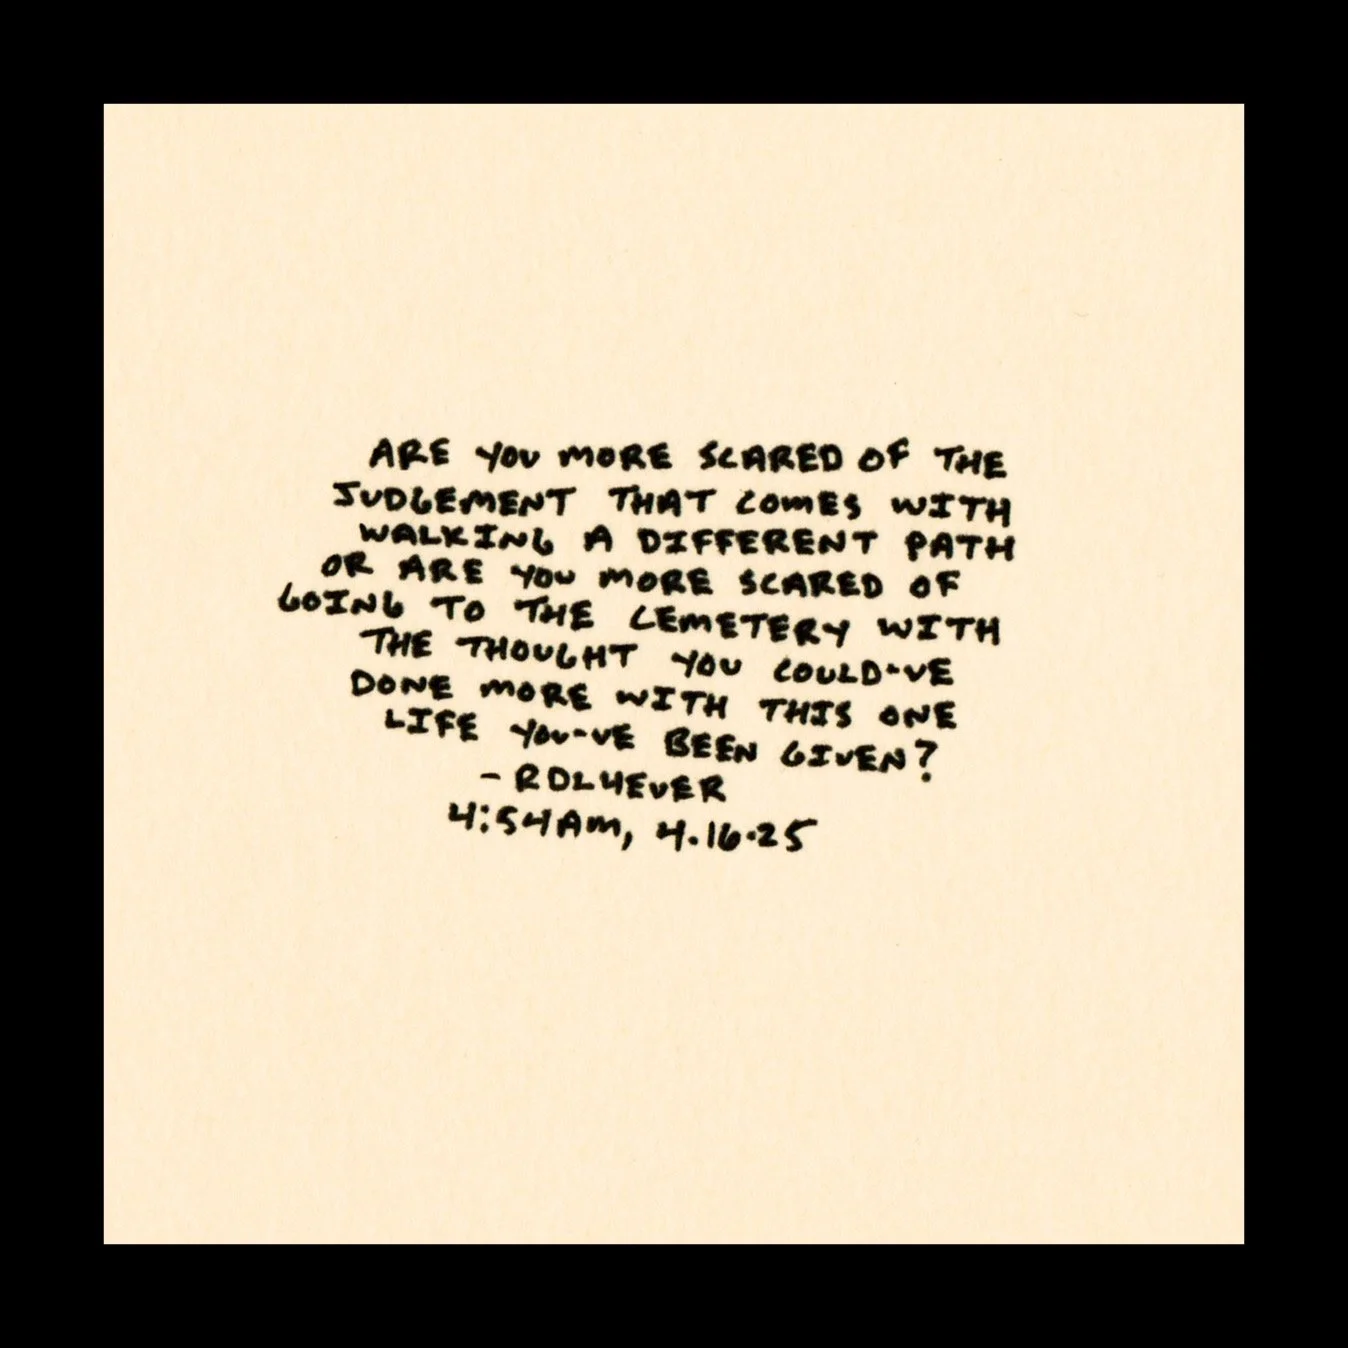 ARE YOU MORE SCARED OF THE
JUDGEMENT THAT COMES WITH
WALKING A DIFFERENT PATH
OR ARE YOU MORE SCARED OF
GOING TO THE CEMETERY WITH
THE THOUGHT YOU COULD-VE
DONE MORE WITH THIS ONE
LIFE YOU-VE BEEN GIVEN?
- RDL4EVER
4:54AM, 4.16.25